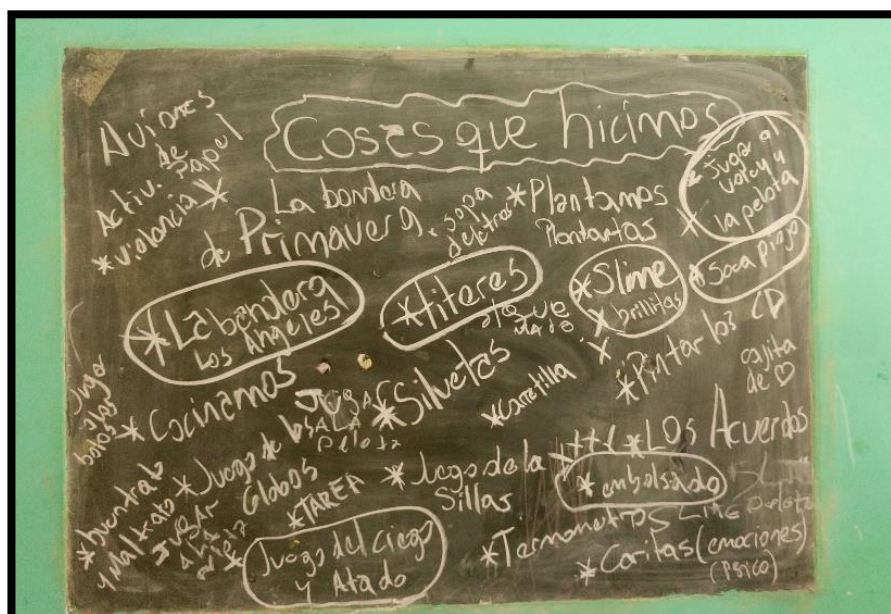 Cosas que hicimos
Aviones
de
Papel
Activ.
* violencia
La bandera
de Primavera
* sopa
de letras
* Plantamos
Plantartas
* jugar al
voley y
la pelota
* La bandera
Los Angeles
* titeres
* Slime
* brillitos
* Saca piojo
* Pintar los CD
cajita
de ♡
Jugar
a las
bolosas
* Cocinamos
* Silvetas
* Carretilla
JUGA
A LA
Pelota
* Los Acuerdos
* buentrato
y Maltrato
* Juego de los
Globos
JUGAR
* TAREA
* Juego de la
Sillas
* embolsado
* Juego del ciego
y Atado
* Termometros
* Caritas (emociones)
(psico)